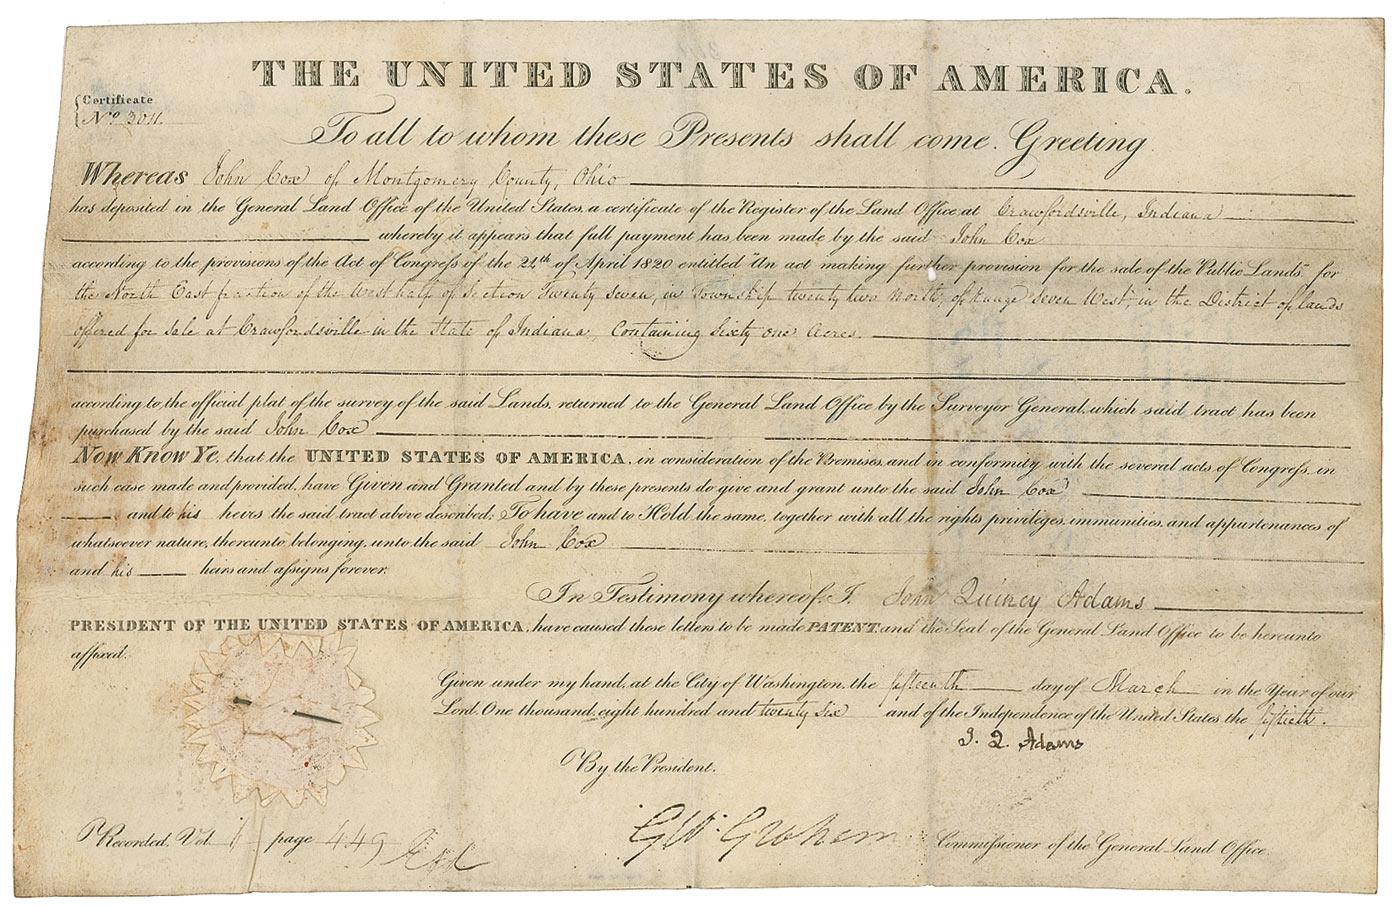 THE UNITED STATES OF AMERICA.
Certificate
No 3011.
To all to whom these Presents shall come. Greeting
Whereas John Cox of Montgomery County, Ohio
has deposited in the General Land Office of the United States, a certificate of the Register of the Land Office at Crawfordsville, Indiana
whereby it appears that full payment has been made by the said John Cox
according to the provisions of the Act of Congress of the 24th of April 1820 entitled "An act making further provision for the sale of the Public Lands," for
the North East fraction of the West half of Section Twenty seven, in Township twenty two North, of Range seven West, in the District of lands
offered for sale at Crawfordsville in the State of Indiana, Containing Sixty one Acres.
according to the official plat of the survey of the said Lands, returned to the General Land Office by the Surveyor General, which said tract has been
purchased by the said John Cox
Now Know Ye, that the UNITED STATES OF AMERICA, in consideration of the Premises, and in conformity with the several acts of Congress, in
such case made and provided, have Given and Granted and by these presents do give and grant unto the said John Cox
and to his heirs the said tract above described; To have and to Hold the same, together with all the rights privileges, immunities, and appurtenances of
whatsoever nature, thereunto belonging, unto the said John Cox
and his heirs and assigns forever.
In Testimony whereof, I, John Quincy Adams
PRESIDENT OF THE UNITED STATES OF AMERICA, have caused these letters to be made PATENT, and the Seal of the General Land Office to be hereunto
affixed.
Given under my hand, at the City of Washington, the fifteenth day of March in the Year of our
Lord, One thousand eight hundred and twenty six and of the Independence of the United States the fiftieth.
J. Q. Adams
By the President.
Recorded, Vol. page 449
Geo. Graham Commissioner of the General Land Office.